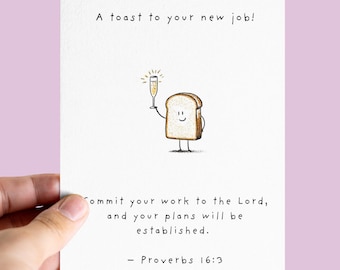 A toast to your new job!
Commit your work to the Lord,
and your plans will be
established.
– Proverbs 16:3